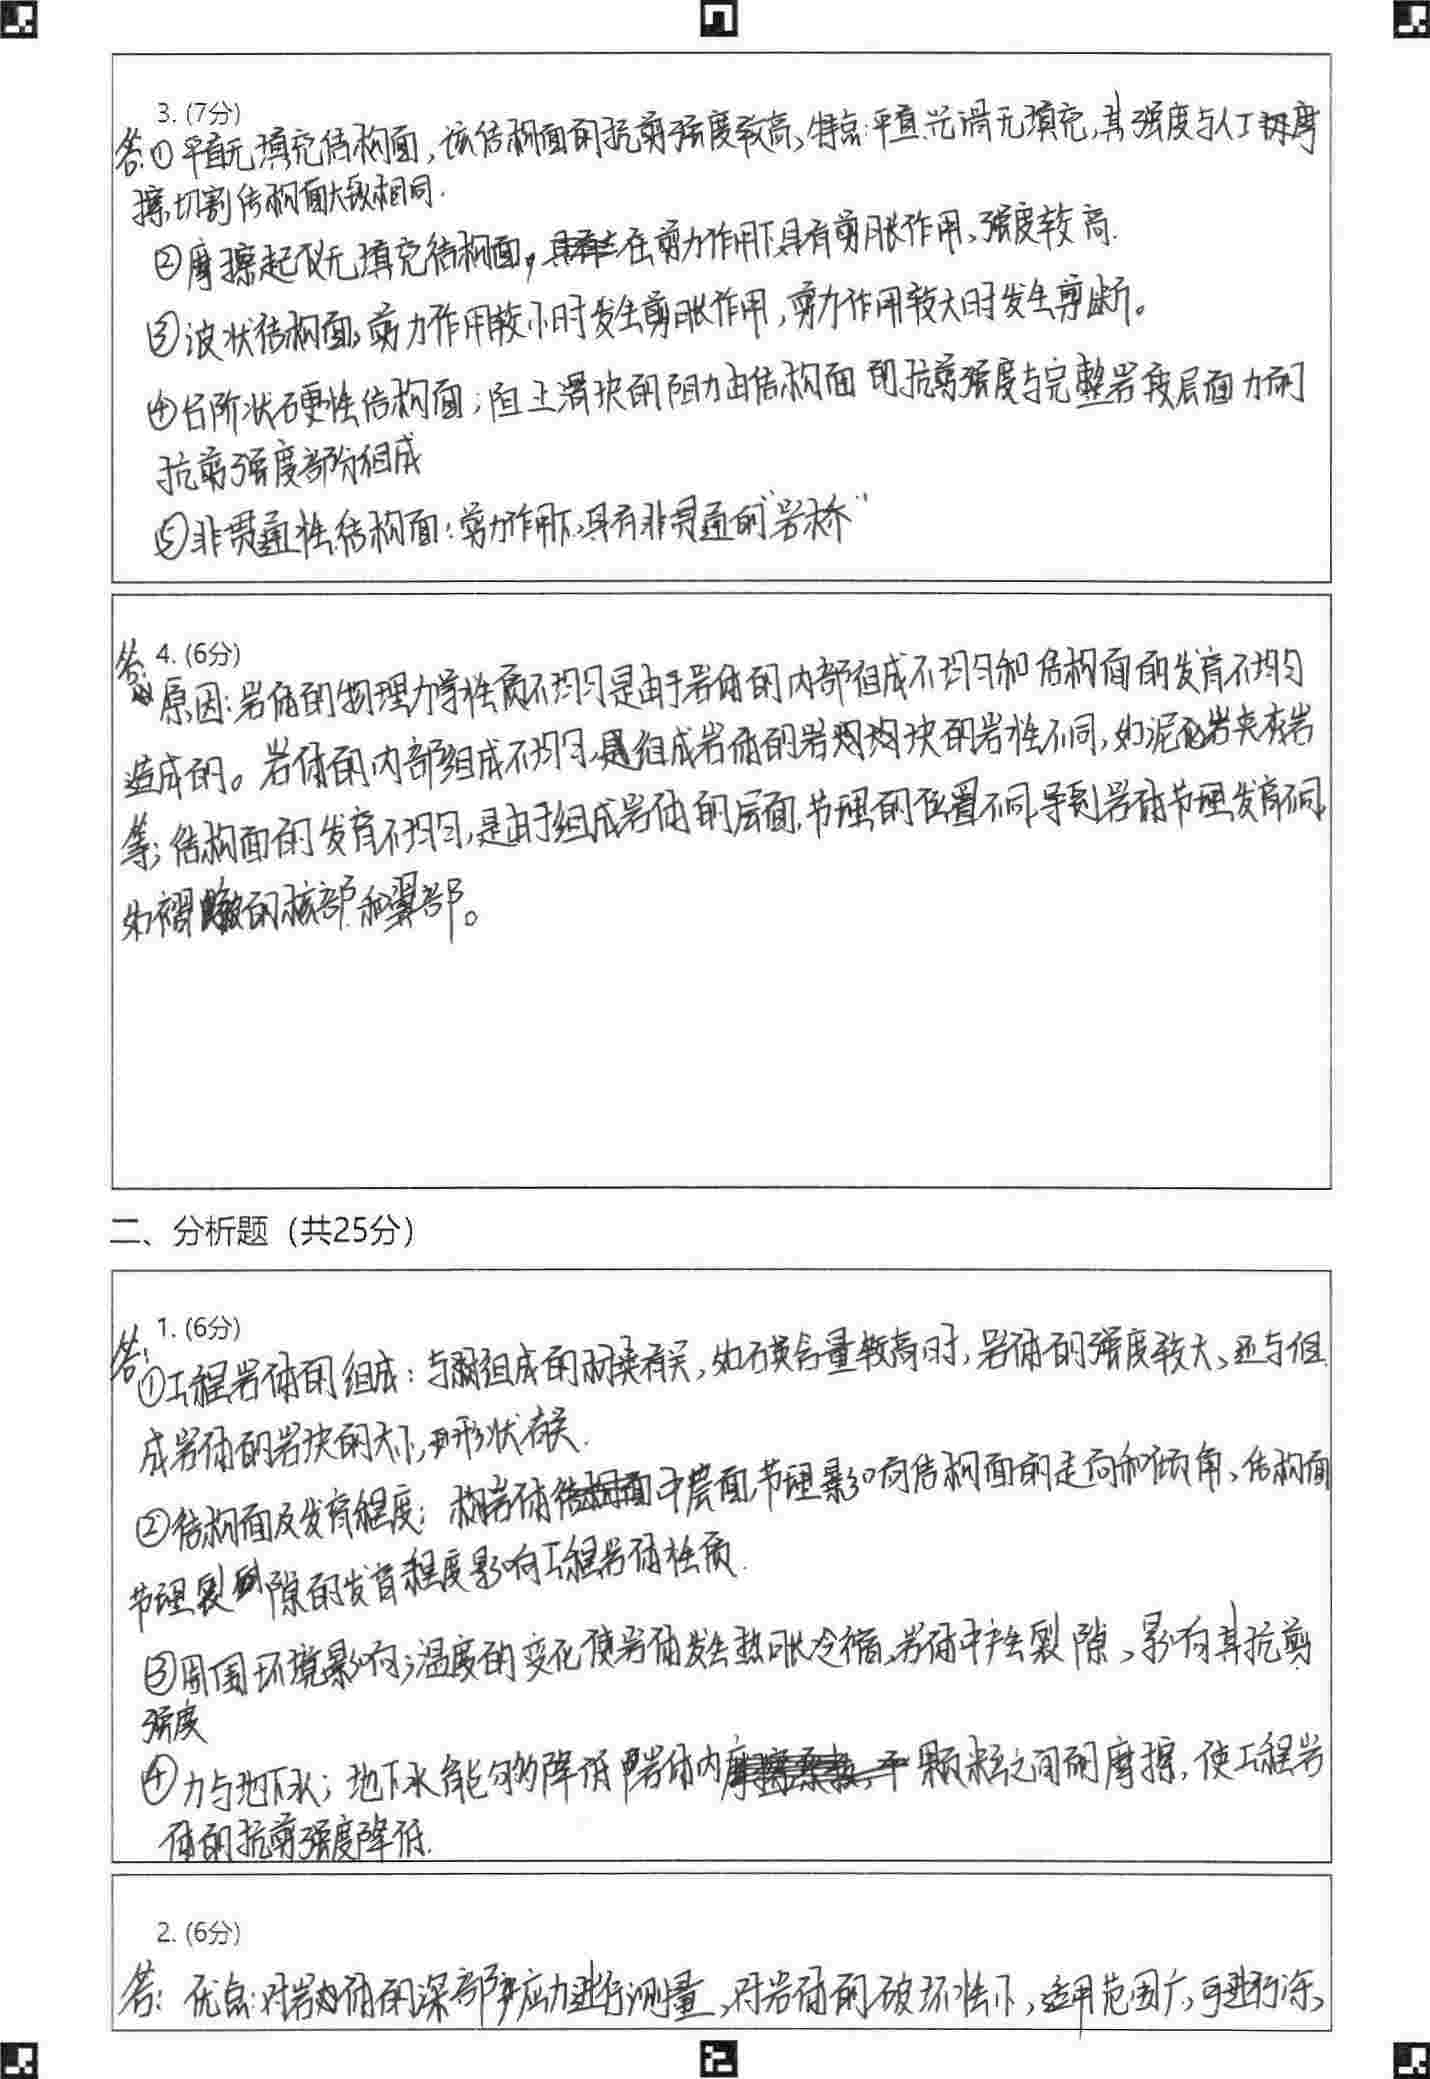 3. (7分)
答:①平直无填充结构面,该结构面的抗剪强度较高,特点:平直光滑无填充,其强度与人工切摩
擦切割结构面大致相同.
②摩擦起伏无填充结构面,在剪力作用下具有剪胀作用,强度较高.
③波状结构面:剪力作用较小时发生剪胀作用,剪力作用较大时发生剪断。
④台阶状硬性结构面;阻止滑块的阻力由结构面的抗剪强度与完整岩段层面力的
抗剪强度部分组成
⑤非贯通性结构面:剪力作用下,具有非贯通的“岩桥”
4. (6分)
答:原因:岩体的物理力学性质不均匀是由于岩体的内部组成不均匀和结构面的发育不均匀
造成的。岩体的内部组成不均匀,是组成岩体的岩块的岩性不同,如泥岩夹灰岩
等;结构面的发育不均匀,是由于组成岩体的层面,节理的位置不同,导到岩体节理发育不同,
如褶皱的核部和翼部。
二、分析题(共25分)
1. (6分)
答:①工程岩体的组成:与组成的种类有关,如石英含量较高时,岩体的强度较大,还与组
成岩体的岩块的大小,形状有关.
②结构面及发育程度:构岩体中层面,节理影响结构面的走向和倾角,结构面
节理裂隙的发育程度影响工程岩体性质.
③周围环境影响;温度的变化使岩体发生热胀冷缩,岩体中产生裂隙,影响其抗剪
强度
④力与地下水;地下水能够降低岩体内颗粒之间的摩擦,使工程岩
体的抗剪强度降低.
2. (6分)
答:优点:对岩体的深部应力进行测量,对岩体的破坏性小,适用范围广,可进行深、